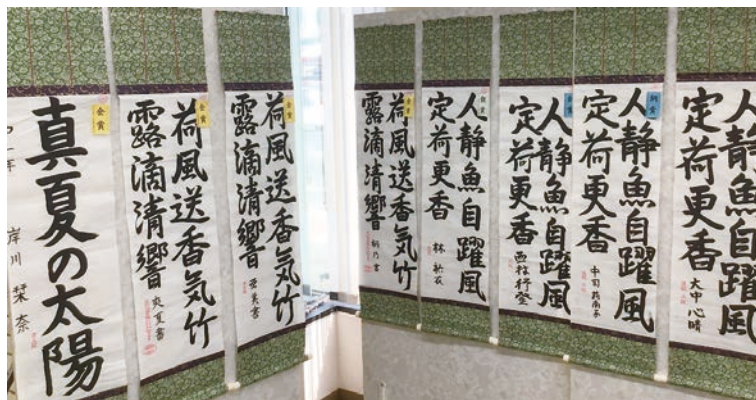 金賞
真夏の太陽
岸川栞奈
金賞
荷風送香気竹
露滴清響 爽夏書
金賞
荷風送香気竹
露滴清響
金賞
荷風送香気竹
露滴清響
人静魚自躍風
定荷更香 林
人静魚自躍風
定荷更香
銅賞
人静魚自躍風
定荷更香 中司
人静魚自躍風
定荷更香 大中心晴